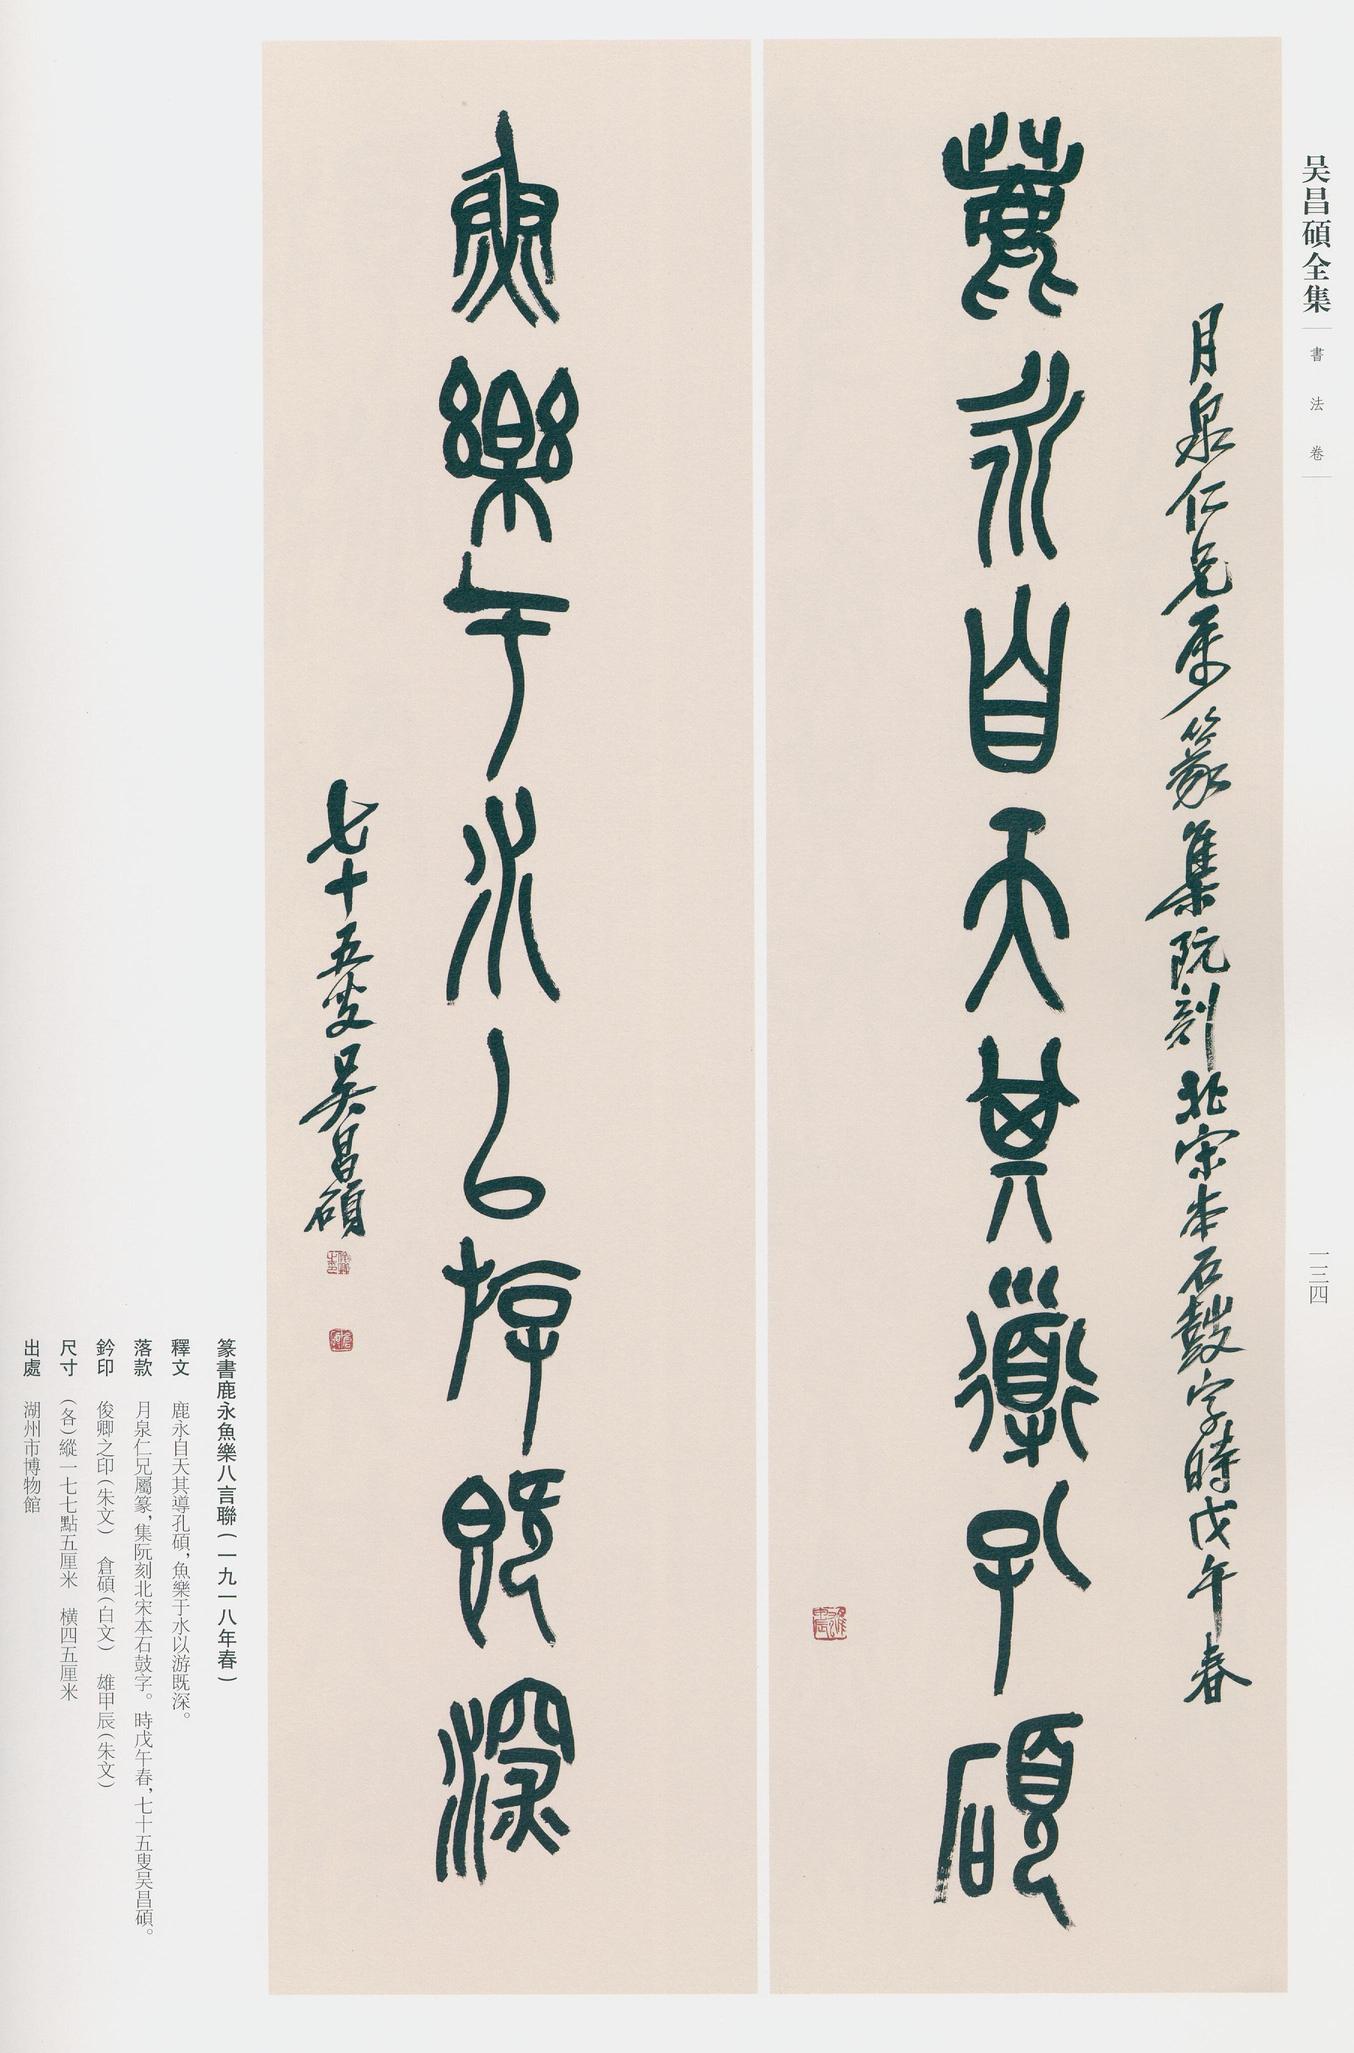 吴昌碩全集
書法卷
一三四
月泉仁兄屬篆集阮刻北宋本石鼓字時戊午春
鹿永自天其導孔碩
魚樂于水以游既深
七十五叟吴昌碩
篆書鹿永魚樂八言聯(一九一八年春)
釋文 鹿永自天其導孔碩,魚樂于水以游既深。
落款 月泉仁兄屬篆,集阮刻北宋本石鼓字。 時戊午春,七十五叟吴昌碩。
鈐印 俊卿之印(朱文) 倉碩(白文) 雄甲辰(朱文)
尺寸 (各)縱一七七點五厘米 橫四五厘米
出處 湖州市博物館